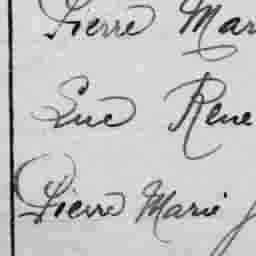 Pierre Mar
Luc Rene
Pierre Marie J